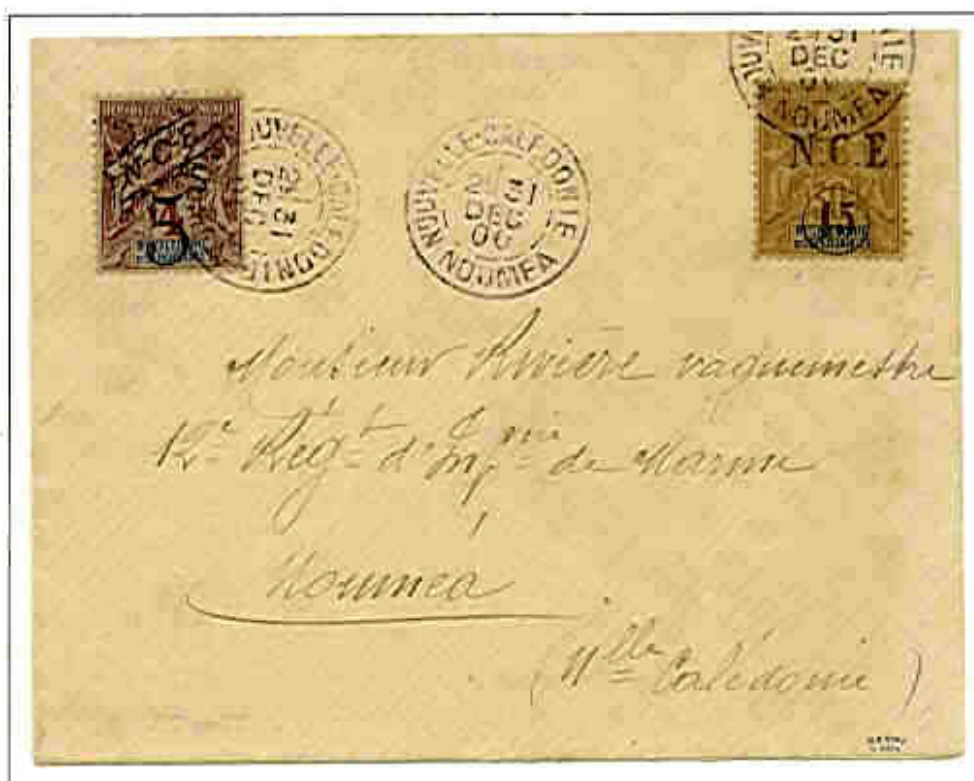 NOUVELLE-CALEDONIE
2E 31
DEC
NOUMEA
NOUVELLE-CALEDONIE
2E 31
DEC
00
NOUMEA
DEC
NOUMEA
N-C-E
4
N.C.E.
15
Monsieur Rivière vaguemestre
12e Régt d'Infrie de Marine
Nouméa
(Nlle Calédonie)